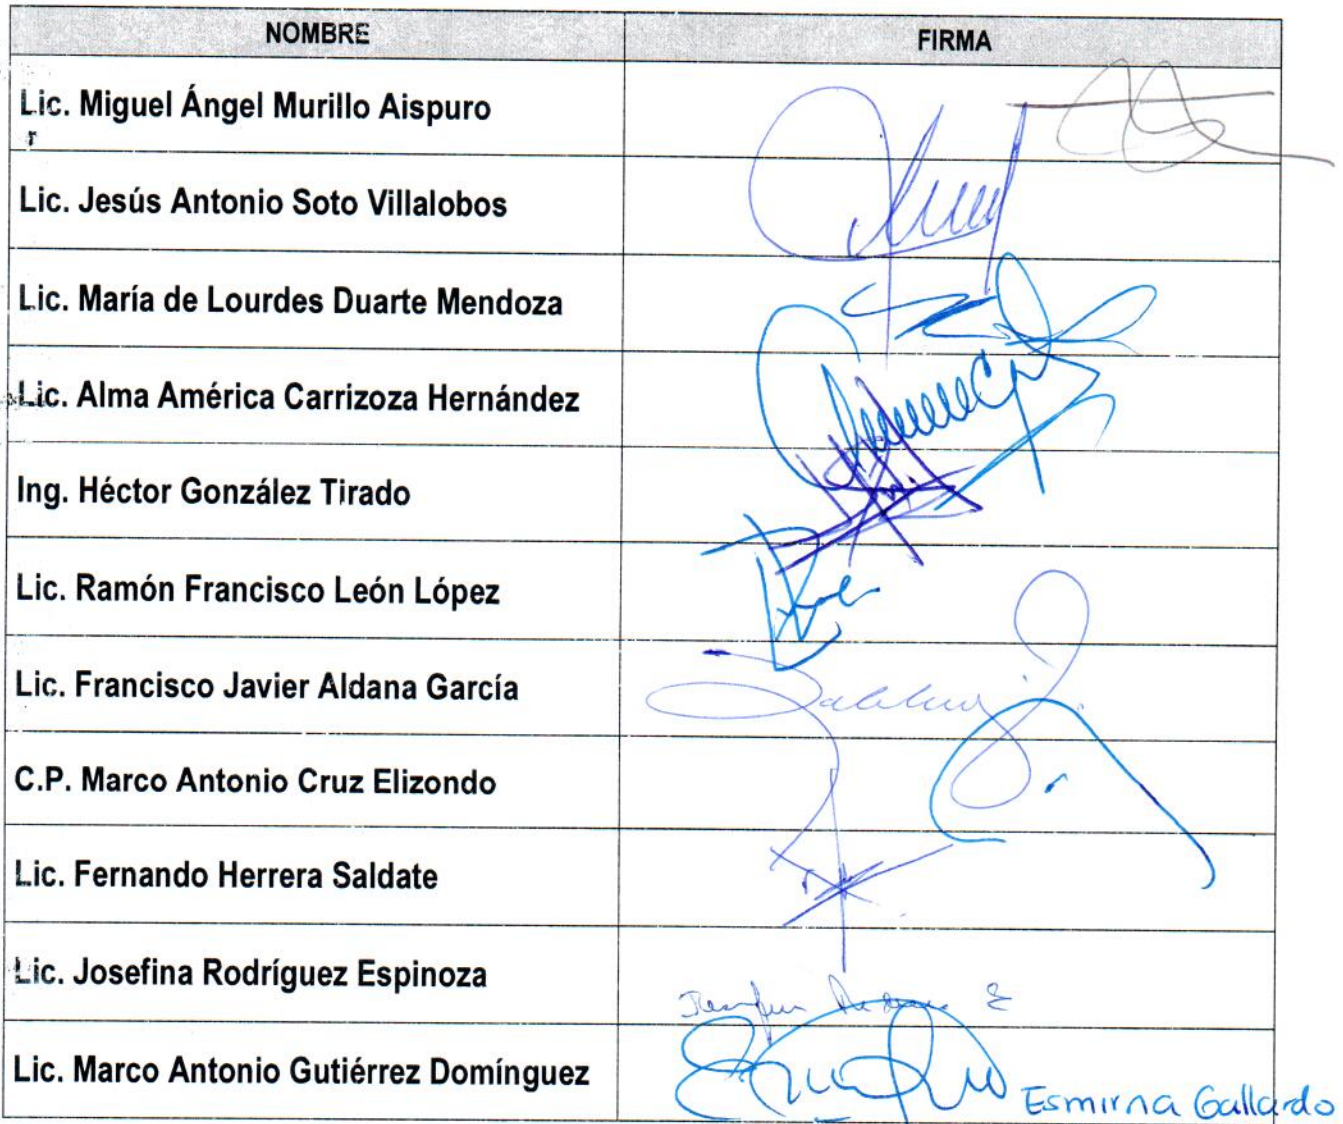 NOMBRE FIRMA
Lic. Miguel Ángel Murillo Aispuro
Lic. Jesús Antonio Soto Villalobos
Lic. María de Lourdes Duarte Mendoza
Lic. Alma América Carrizoza Hernández
Ing. Héctor González Tirado
Lic. Ramón Francisco León López
Lic. Francisco Javier Aldana García
C.P. Marco Antonio Cruz Elizondo
Lic. Fernando Herrera Saldate
Lic. Josefina Rodríguez Espinoza
Lic. Marco Antonio Gutiérrez Domínguez
Esmirna Gallardo